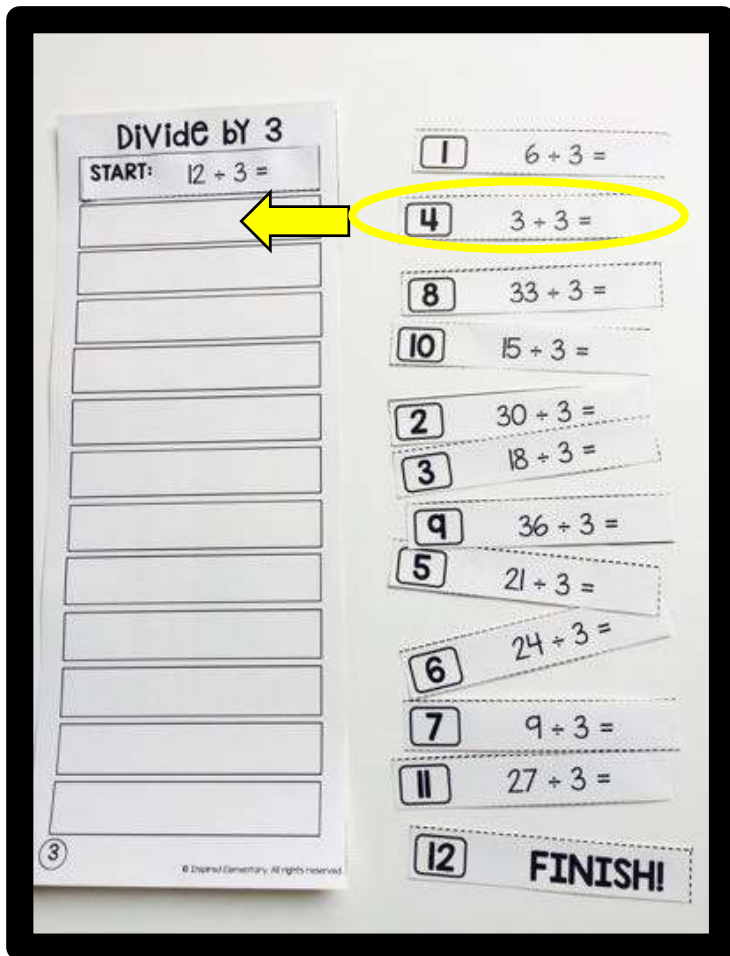 Divide by 3
START: 12 ÷ 3 =
3
© Inspired Elementary. All rights reserved.
1 6 ÷ 3 =
4 3 ÷ 3 =
8 33 ÷ 3 =
10 15 ÷ 3 =
2 30 ÷ 3 =
3 18 ÷ 3 =
9 36 ÷ 3 =
5 21 ÷ 3 =
6 24 ÷ 3 =
7 9 ÷ 3 =
11 27 ÷ 3 =
12 FINISH!